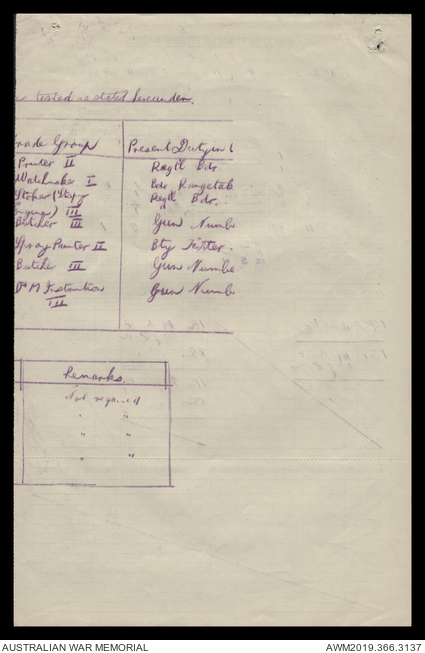 tested as stated hereunder.
rade Group Present Duty in U
Printer II Regtl Bdr
Watchmaker I Bdr Rangetak
Stoker (Stepy Regtl Bdr.
Engines) III
Butcher III Gun Numbe
Spray Painter II Bty Fitter.
Butche III Gun Numbe
D & M Instruction Gun Numbe
III
Remarks.
Not required
" "
" "
" "
AUSTRALIAN WAR MEMORIAL AWM2019.366.3137